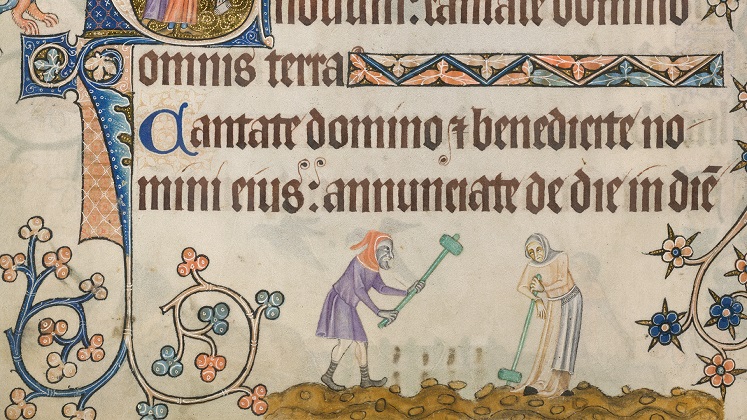 notium: cantate domino
omnis terra
Cantate domino ⁊ benedicite no-
mini eius: annunciate de die in diē